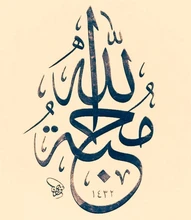 محبة الله
١٤٣٢